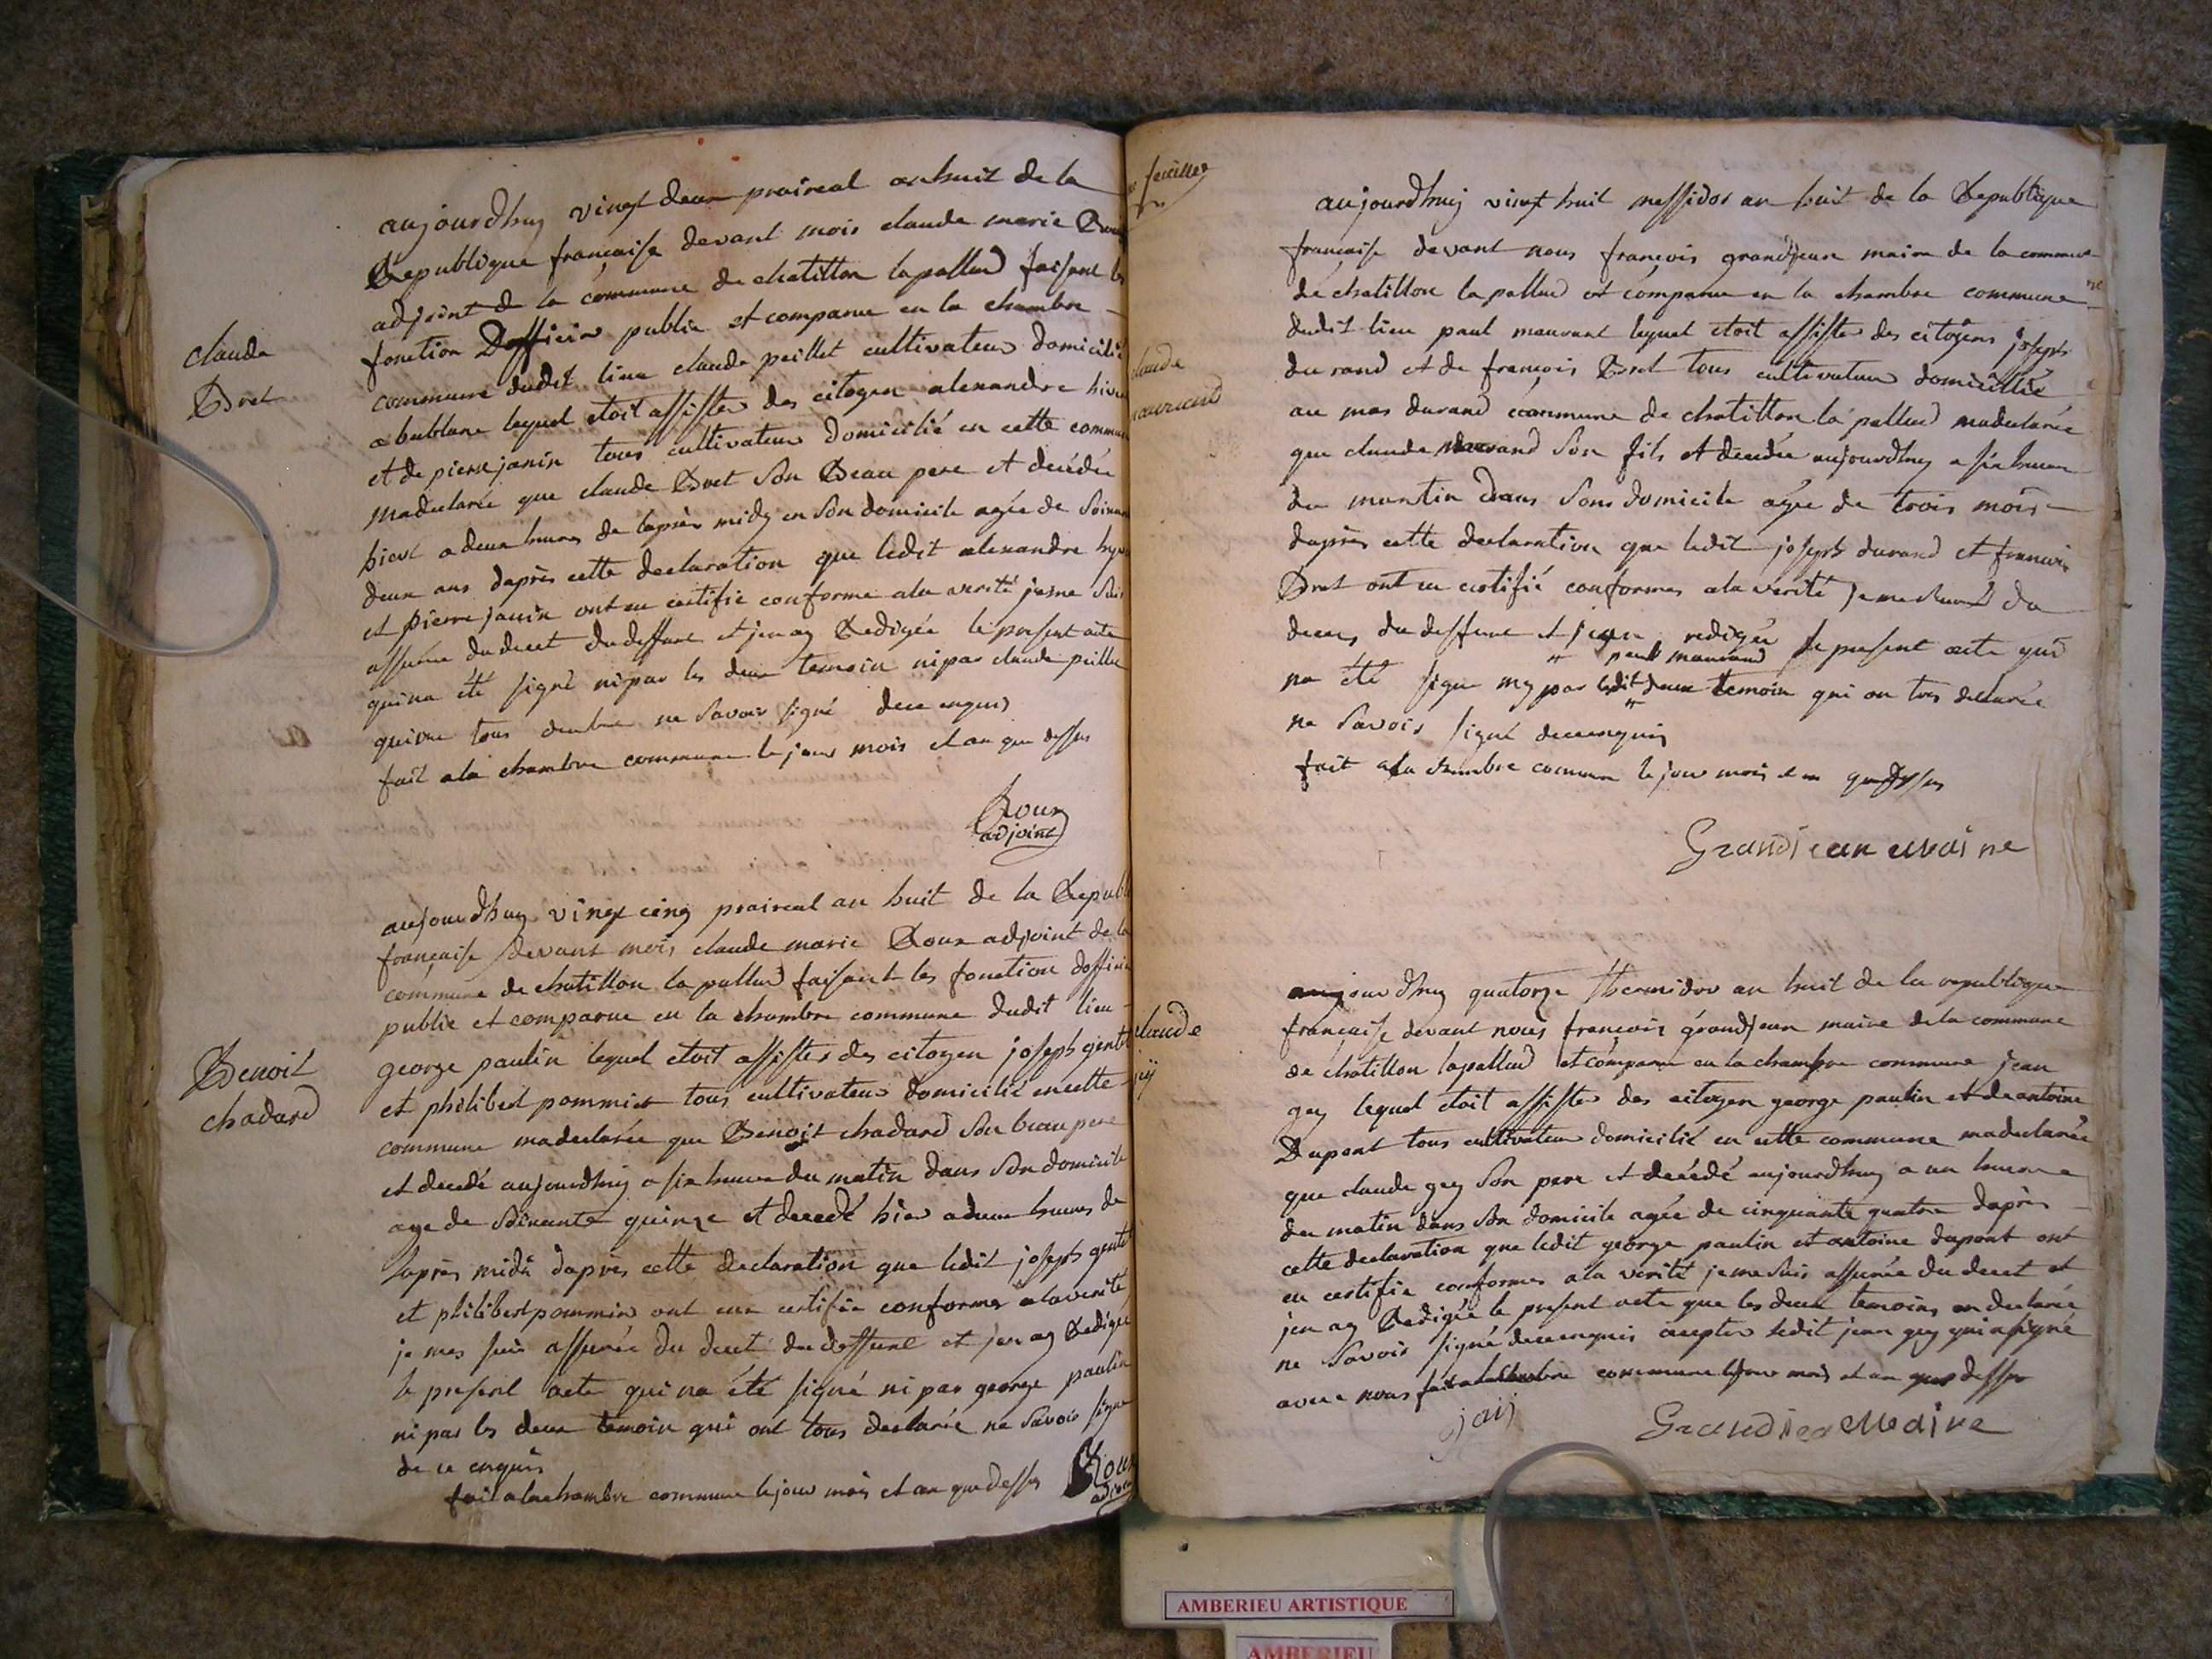 aujourdhuy vingt deux praireal an huit de la
Republique française devant mois claude marie
adjoint de la commune de chatillon lapallud faisant les
fonction Dofficier public et comparue en la chambre
claude
Bret
commune dudit lieu claude peillet cultivateur domicilié
a bublane lequel etoit assister des citoyen alexandre
et de pierre janin tous cultivateur domicilié en cette commune
madeclarée que claude Bret son Beau pere et decédée
hier a deux heures de laprès midy en son domicile agée de
deux ans daprès cette declaration que ledit alexandre
et pierre janin ont en certifié conforme ala verité je me suis
assurée du decet du deffunt et jen ay Redigée le present acte
qui na été signé ni par les deux temoin ni par claude peillet
tous ne savoir signé de ce enquis
fait ala chambre commune le jour mois et an que dessus
Roux
adjoint
aujourdhuy vingt cinq praireal an huit de la Republ
française devant mois claude marie Roux adjoint de la
commune de chatillon la pallud faisant les fonction dofficier
public et comparue en la chambre commune dudit lieu
Benoit
chadard
george paulin lequel etoit assister des citoyen joseph
et philibert pommier tous cultivateur domicilié en cette
commune madeclarée que Benoit chadard son beau pere
et decedé aujourdhuy a six heure du matin dans son domicile
age de soixante quinze et decedé hier a deux heures de
laprès midi daprès cette declaration que ledit joseph
et philibert pommier ont en certifié conforme ala verité
je mes suis assurée du decet du deffunt et jen ay Redigée
le present acte qui na été signé ni par george paulin
ni par les deux temoin qui ont tous declarée ne savoir signe
de ce enquis
fait ala chambre commune le jour mois et an que dessus
Roux
feuilles
aujourdhuy vingt huit messidor an huit de la Republique
française devant nous françois grandjean maire de la commune
de chatillon la pallud et comparue en la chambre commune
dudit lieu paul mauvant lequel etoit assister des citoyens joseph
claude
durand et de françois Bret tous cultivateur domicillié
au mas durand commune de chatillon la pallud madeclarée
que claude son fils et decedée aujourdhuy a six heure
du mantin dans sons domicile agée de trois mois
daprès cette declaration que ledit joseph durand et francois
Bret ont en certifié conformes ala verité du
deces du deffunt et redigée le present acte qui
paul
na été signe ny par ledit deux temoin qui on tous declarée
ne savoir signé de ce enquis
fait ala chambre comune le jour mois et an que dessus
Grandjean maire
aujourdhuy quatorze thermidor an huit de la republique
française devant nous françois grandjean maire dela commune
claude
de chatillon lapallud et comparue en la chambre commune jean
gey lequel etoit assister des citoyen george paulin et de antoine
Dupont tous cultivateur domicilié en cette commune madeclarée
que claude gey son pere et decédé aujourdhuy a un heure
du matin dans son domicile agée de cinquante quatre daprès
cette declaration que ledit george paulin et antoine dupont ont
en certifié conformes ala verité je me suis assurée du decet et
jen ay Redigée le present acte que les deux temoins on declarée
ne savoir signé de ce enquis excepter ledit jean gey qui a signé
avec nous fait ala chambre commune le jour mois et an que dessus
Grandjean Maire
AMBERIEU ARTISTIQUE
AMBERIEU